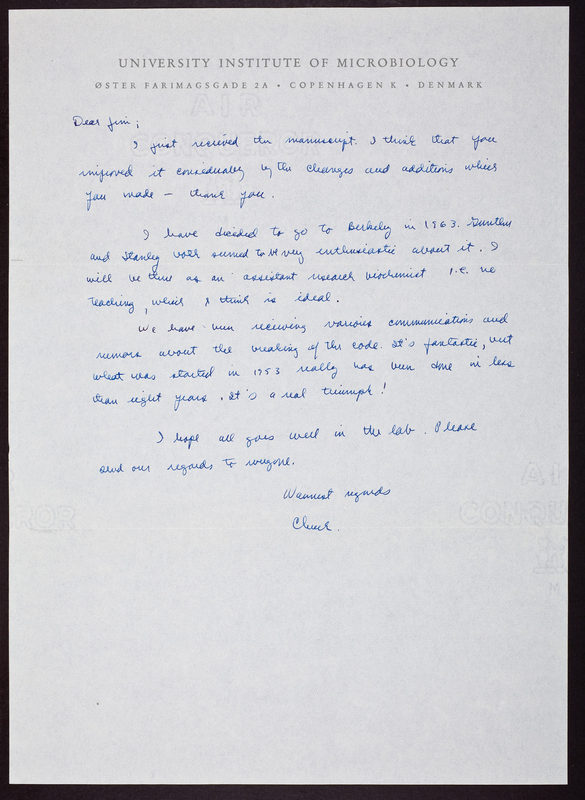 UNIVERSITY INSTITUTE OF MICROBIOLOGY
ØSTER FARIMAGSGADE 2A • COPENHAGEN K • DENMARK
Dear Jim;
I just recieved the manuscript. I think that you
improved it considerably by the changes and additions which
you made – thank you.
I have decided to go to Berkeley in 1963. Gunther
and Stanley both seemed to be very enthusiastic about it. I
will be there as an assistant research biochemist i.e. no
teaching, which I think is ideal.
We have been receiving various communications and
rumors about the breaking of the code. It's fantastic, but
what was started in 1953 really has been done in less
than eight years. It's a real triumph!
I hope all goes well in the lab. Please
send our regards to everyone.
Warmest regards
Chuck.
AIR